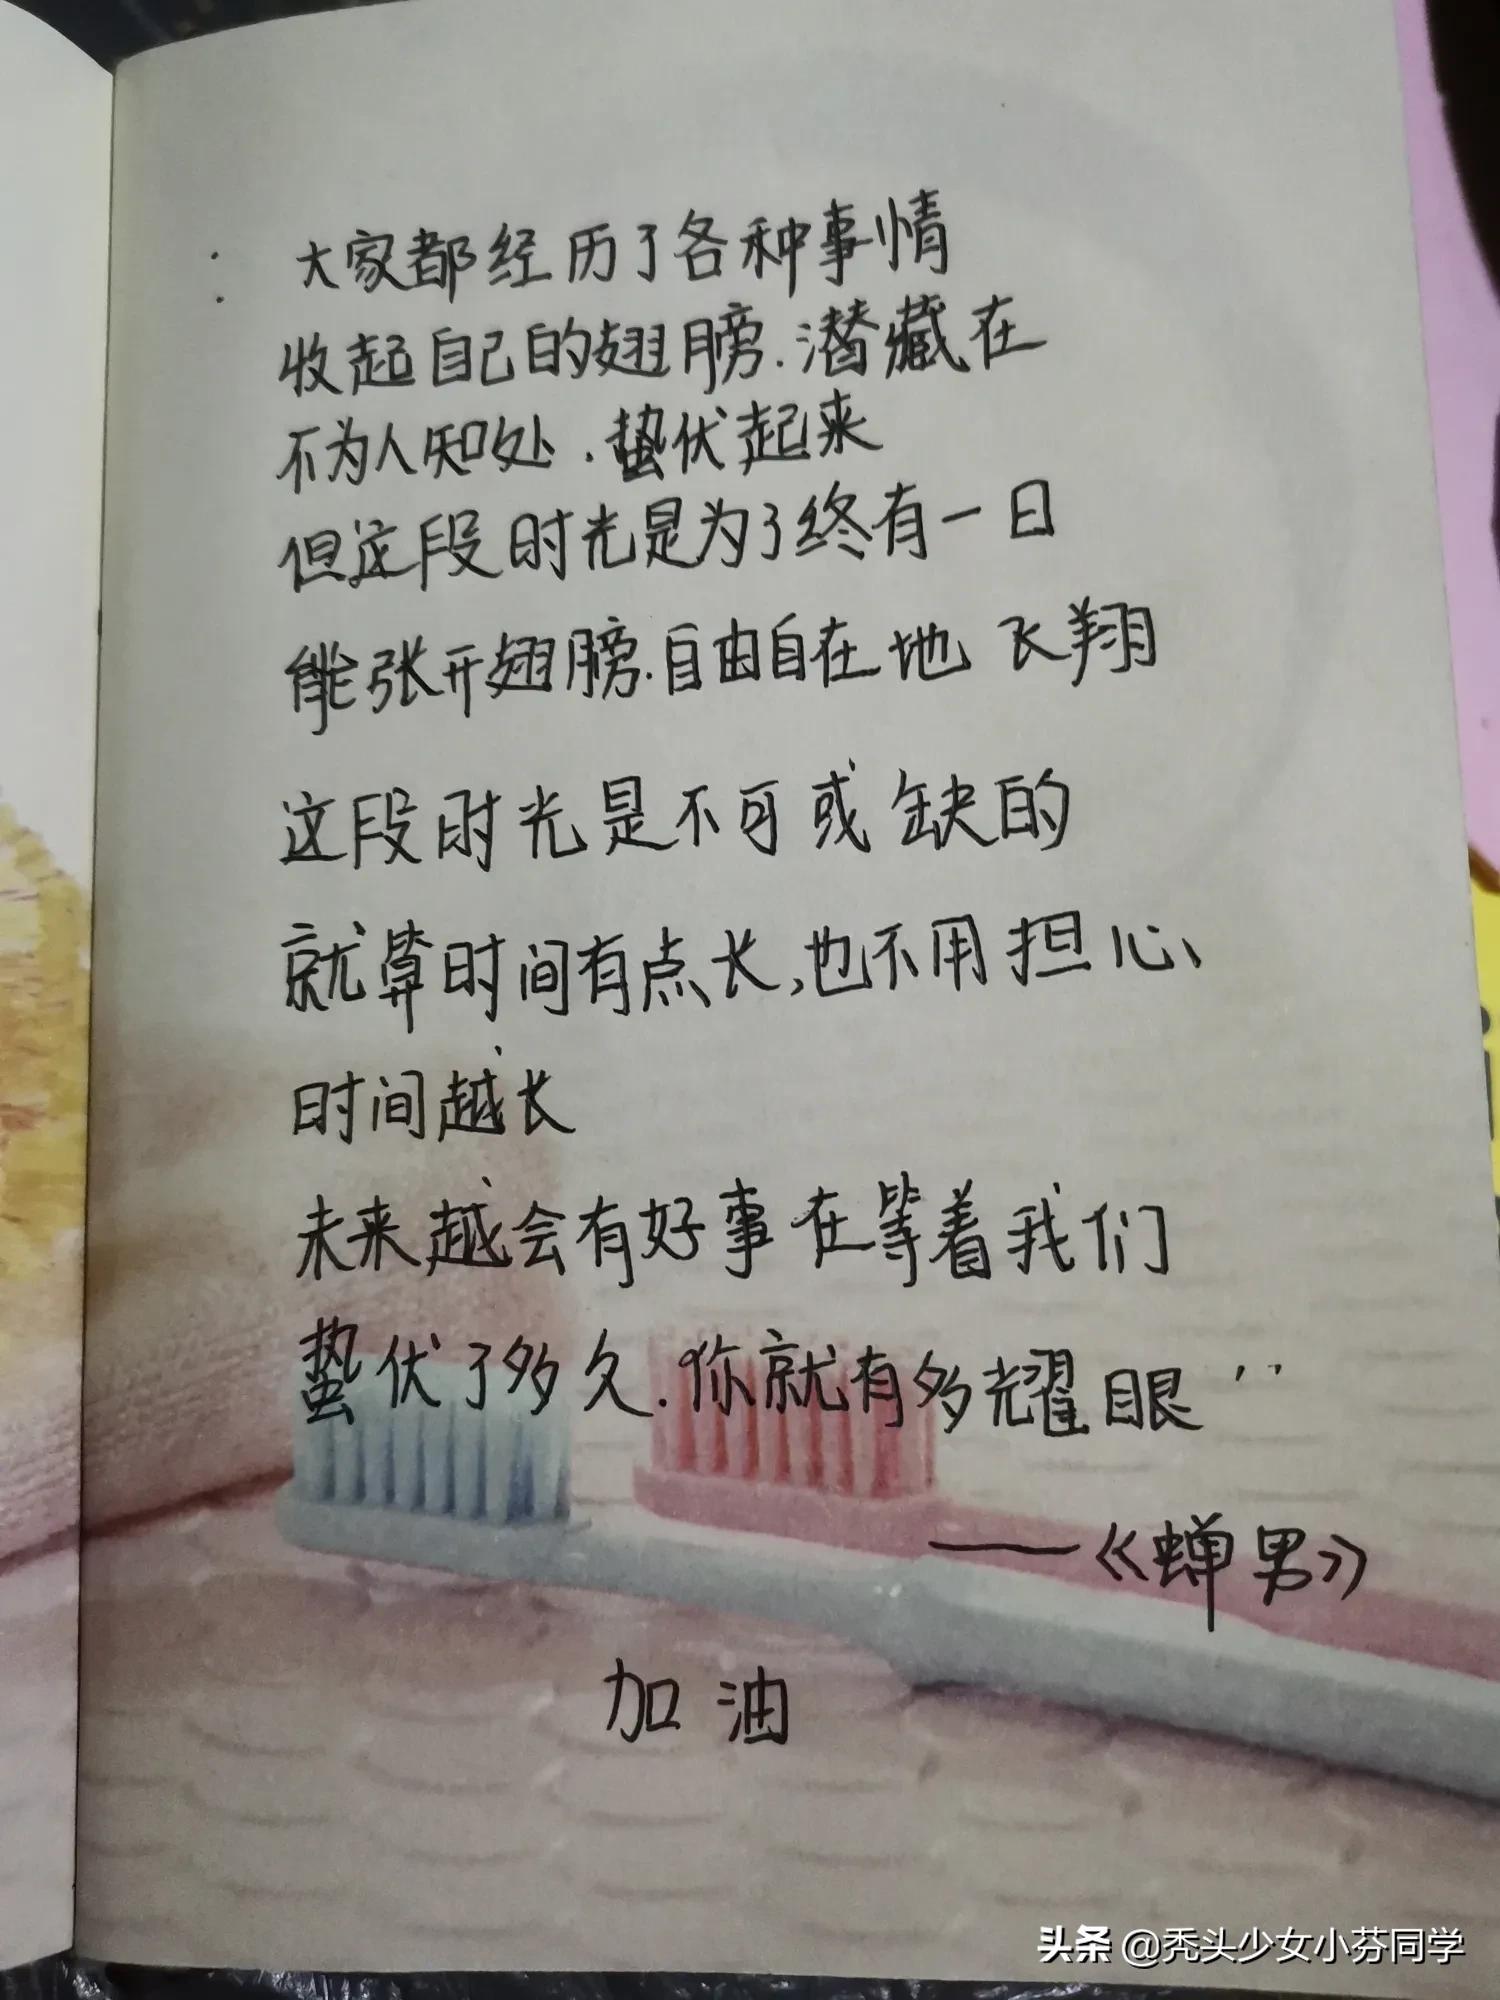 : 大家都经历了各种事情
收起自己的翅膀.潜藏在
不为人知处.蛰伏起来
但这段时光是为了终有一日
能张开翅膀.自由自在地飞翔
这段时光是不可或缺的
就算时间有点长,也不用担心、
时间越长
未来越会有好事在等着我们
蛰伏了多久.你就有多耀眼''
——《蝉男》
加油
头条 @秃头少女小芬同学